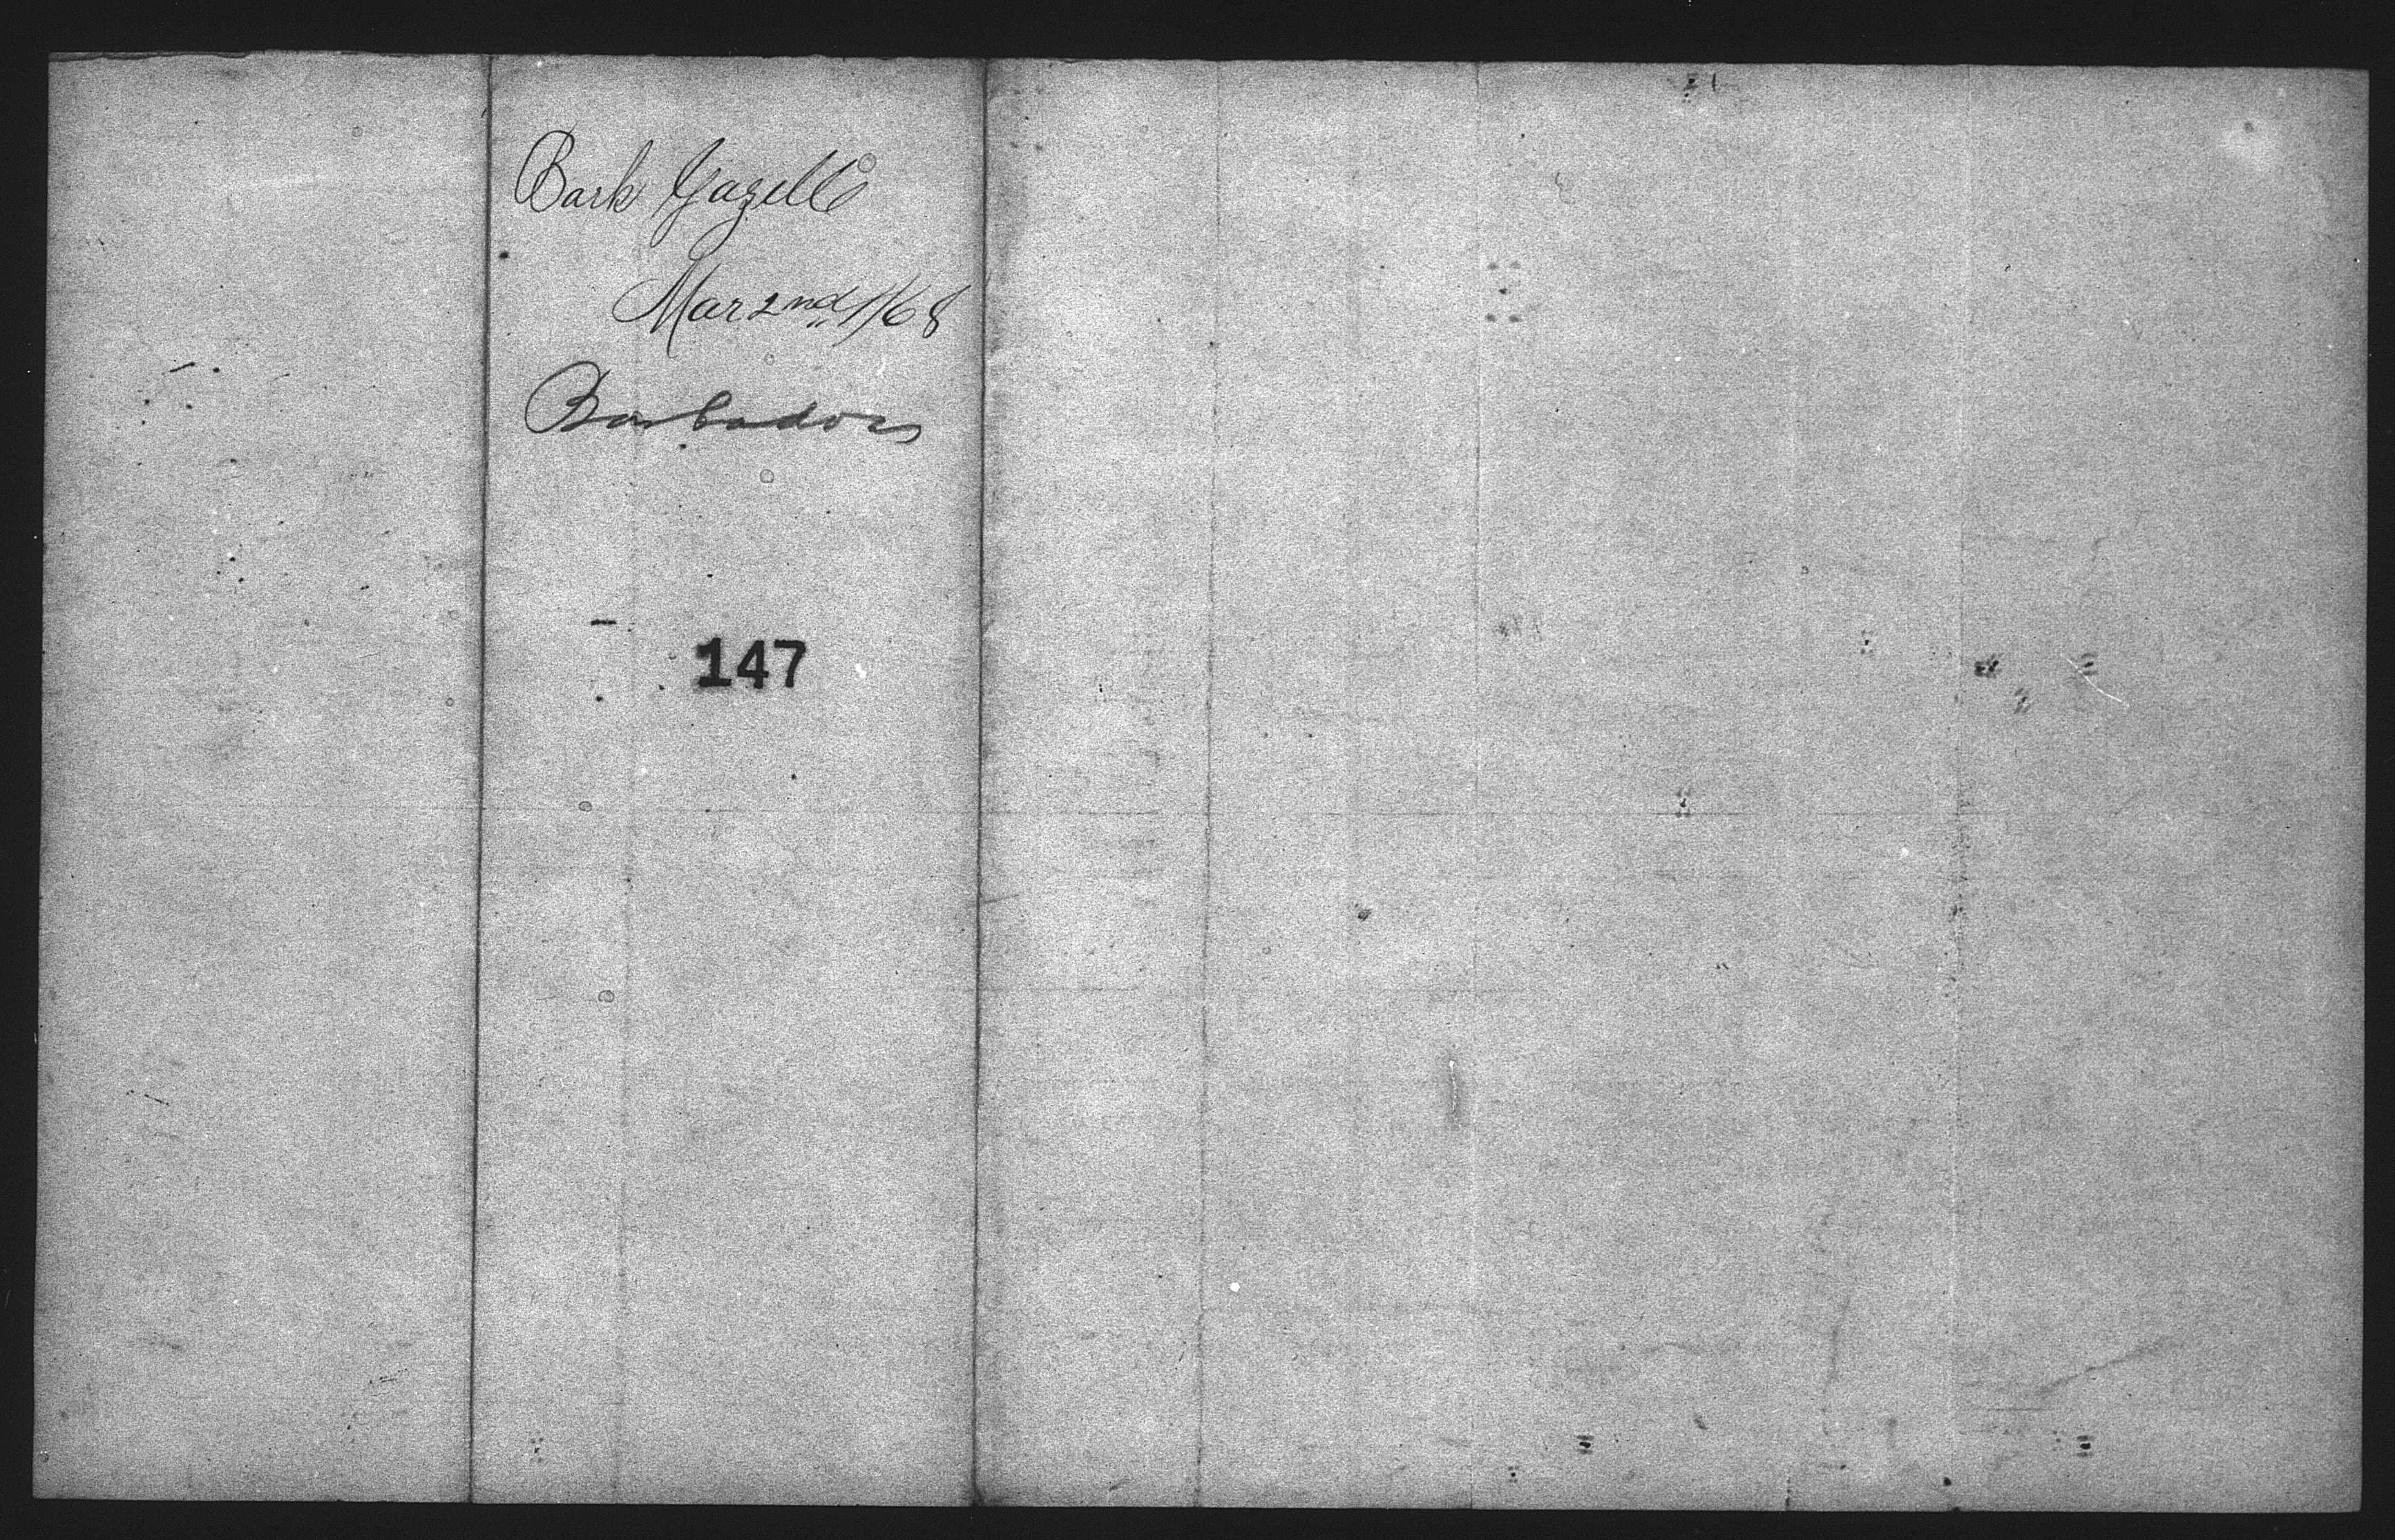 Bark Gazelle
Mar 2nd 1/68
Barbados
147